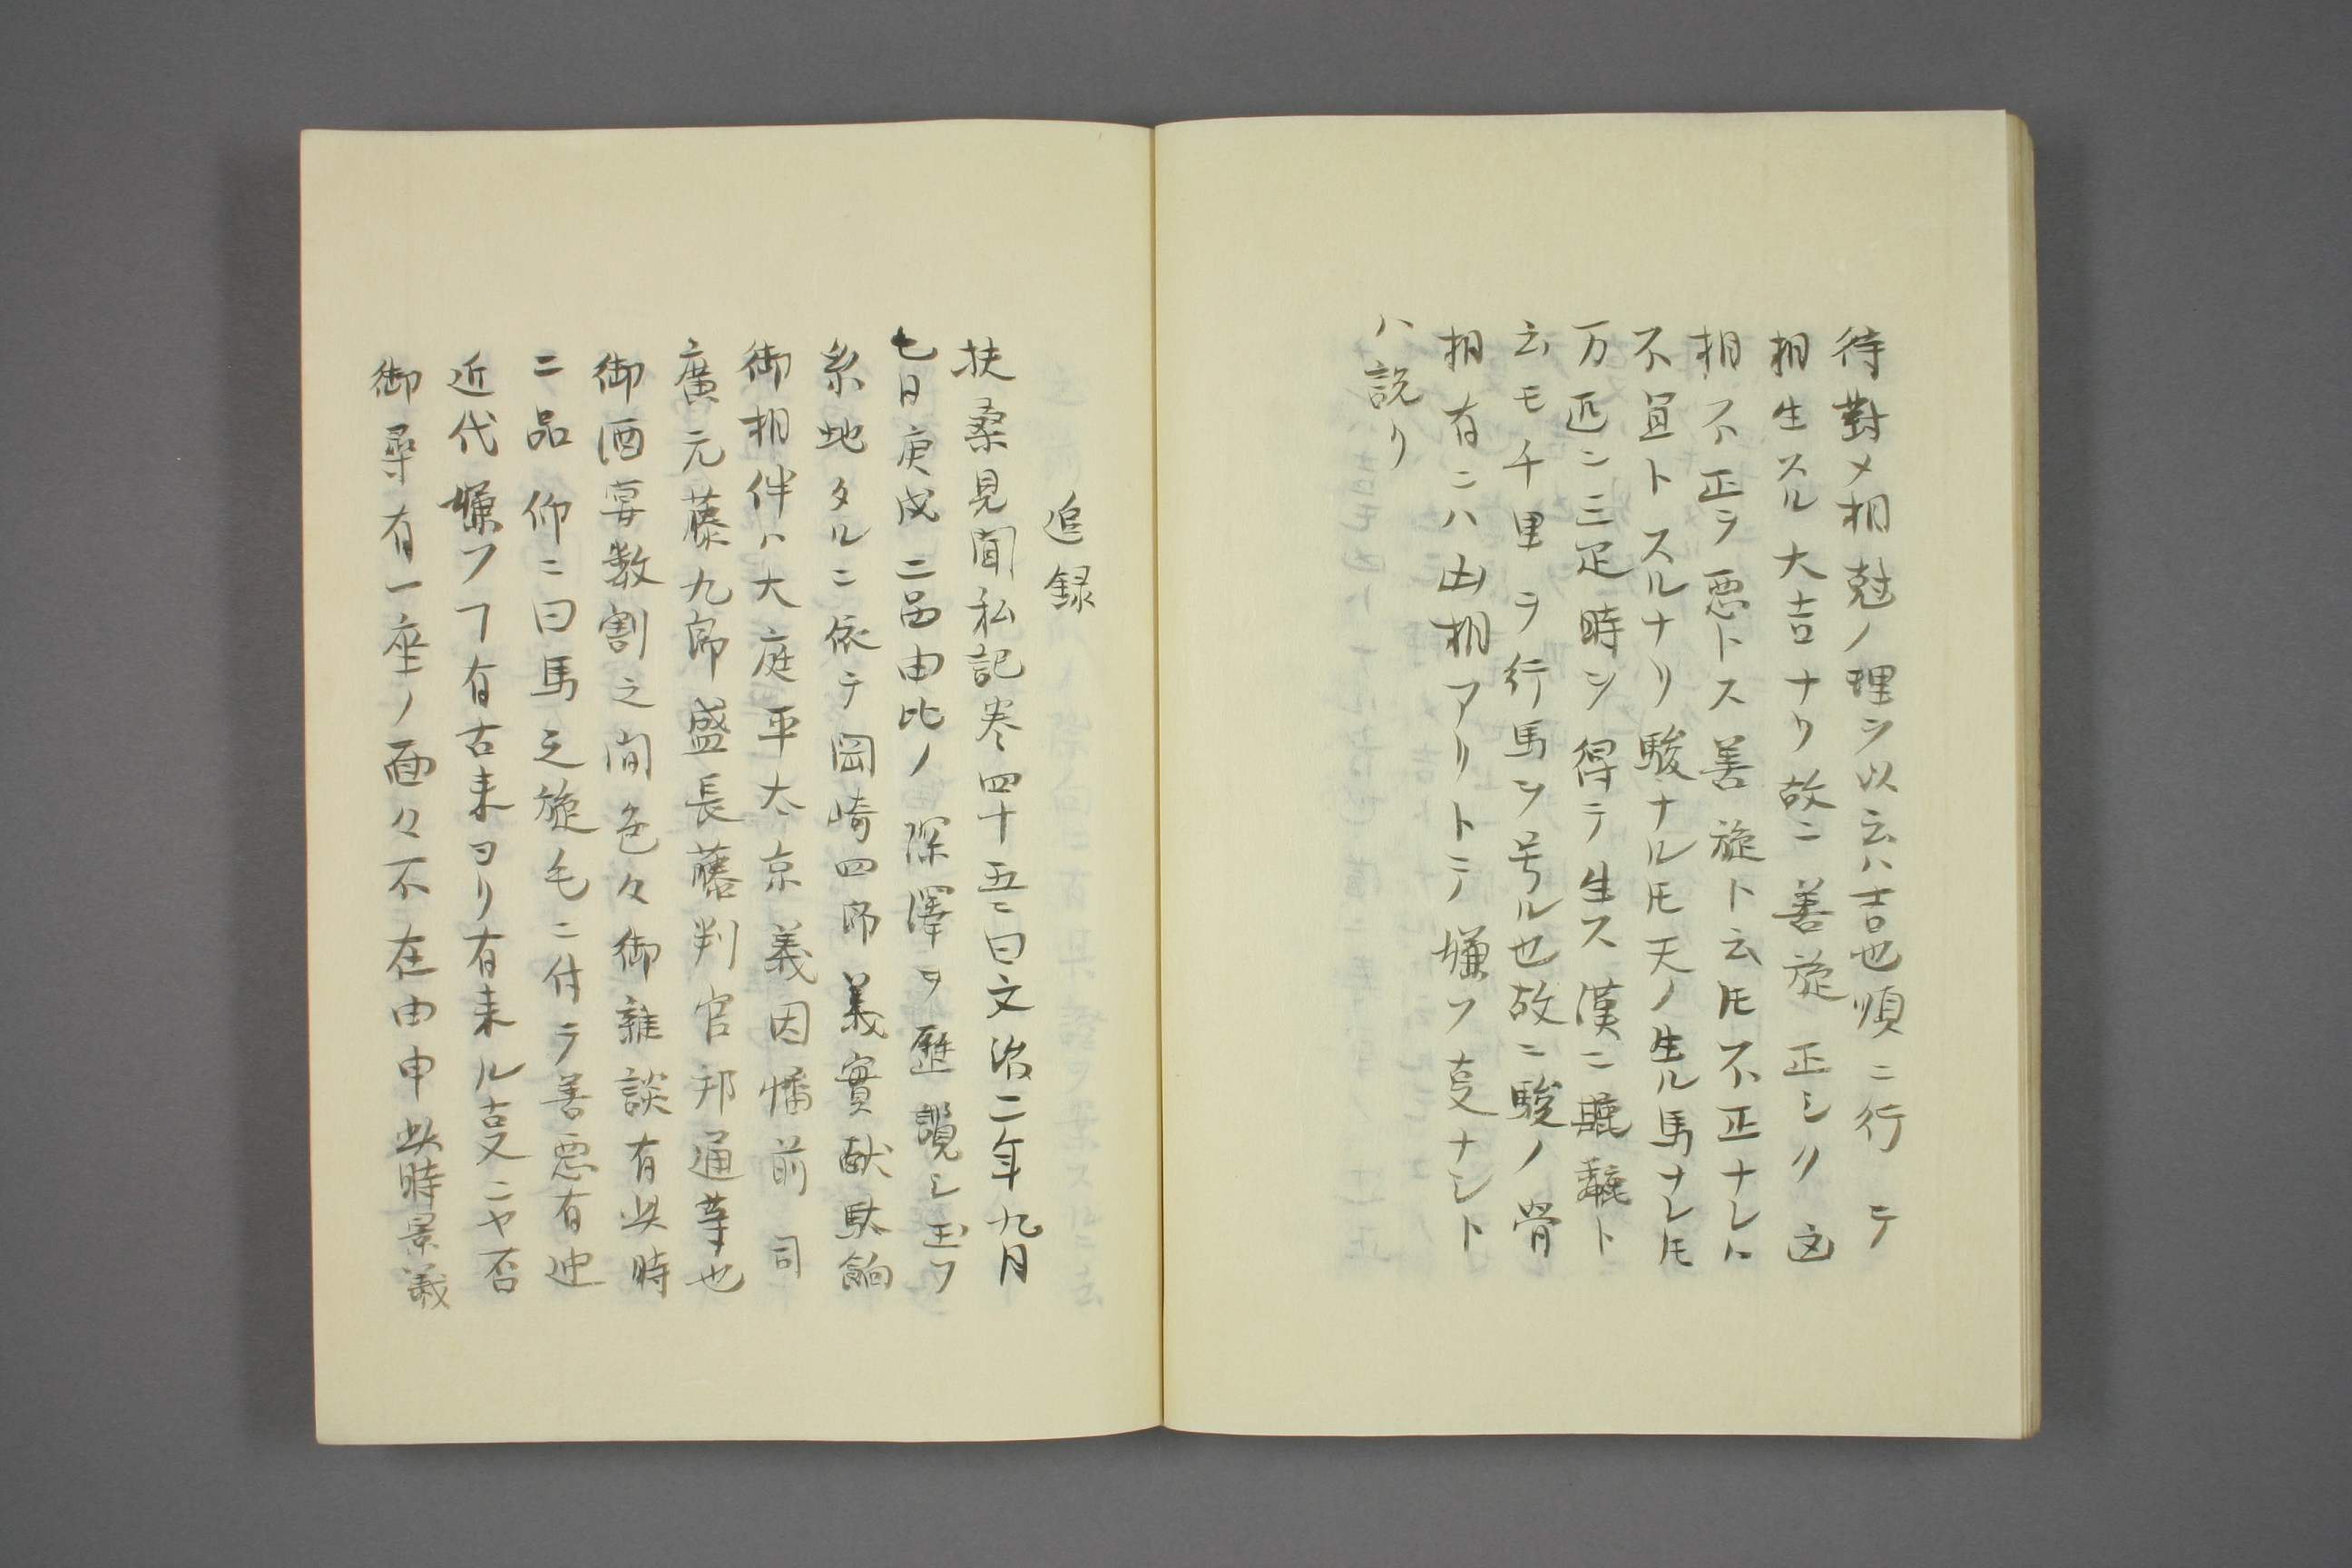 待對メ相尅ノ理ヲ以云ハ吉也順ニ行テ
相生スル大吉ナリ故ニ善旋正シク
相不正ヲ悪トス善旋ト云ヒ不正ナレハ
不宜トスルナリ駿ナルヒ天ノ生ル馬ナレヒ
万匹ニ三疋時ヲ得テ生ス漢ニト
云モ千里ヲ行馬ヲ号ル也故ニ駿ノ骨
相有ニハ凶相アリトテ嫌フ叓ナシト
ハ説リ
追録
扶桑見聞私記巻四十五ニ曰文治二年九月
七日庚戌二品由比ノ深澤ヲ歴覧シ玉フ
糸地タルニ依テ岡崎四郎義實献駄餉
御相伴ハ大庭平太京義因幡前司
廣元藤九郎盛長藤判官邦通等也
御酒宴数割之間色々御雑談有此時
二品仰ニ曰馬之旋毛ニ付テ善悪有
近代嫌フヿ有古来ヨリ有来ル叓ニヤ否
御尋有一座ノ面々不在由申此時景義